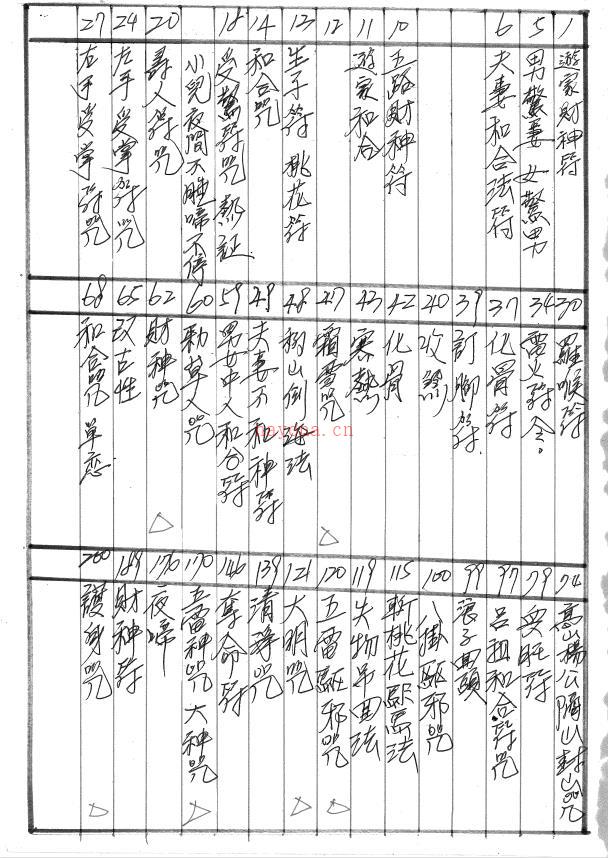 1 遊家財神符
5 男驚妻 女驚男
6 夫妻和合法符
10 五路財神符
11 遊家和合
12
13 生子符 桃花符
14 和合咒
18 受驚符咒 熱証
小兒夜間不睡啼不停
20 壽人符咒
24 左手受掌符咒
27 右手受掌符咒
30 羅喉符
34 雷火符令
37 化骨符
39 訂腳符
40 收驚
42 化骨
43 寒熱
47 霜雪咒
48 移山倒海法
49 夫妻不和神符
59 男女中人和合符
60 勅草人咒
62 財神咒
65 改古性
68 和合咒 單恋
74 高山楊公隔山封山咒
79 興旺符
97 呂祖和合符咒
99 浪子回頭
100 八掛驅邪咒
115 斬桃花驅馬法
119 失物吊回法
120 五雷驅邪咒
121 大明咒
139 清淨咒
146 奪命符
170 五雷神咒 大神咒
176 夜啼
189 財神符
200 護身咒
nayona.cn